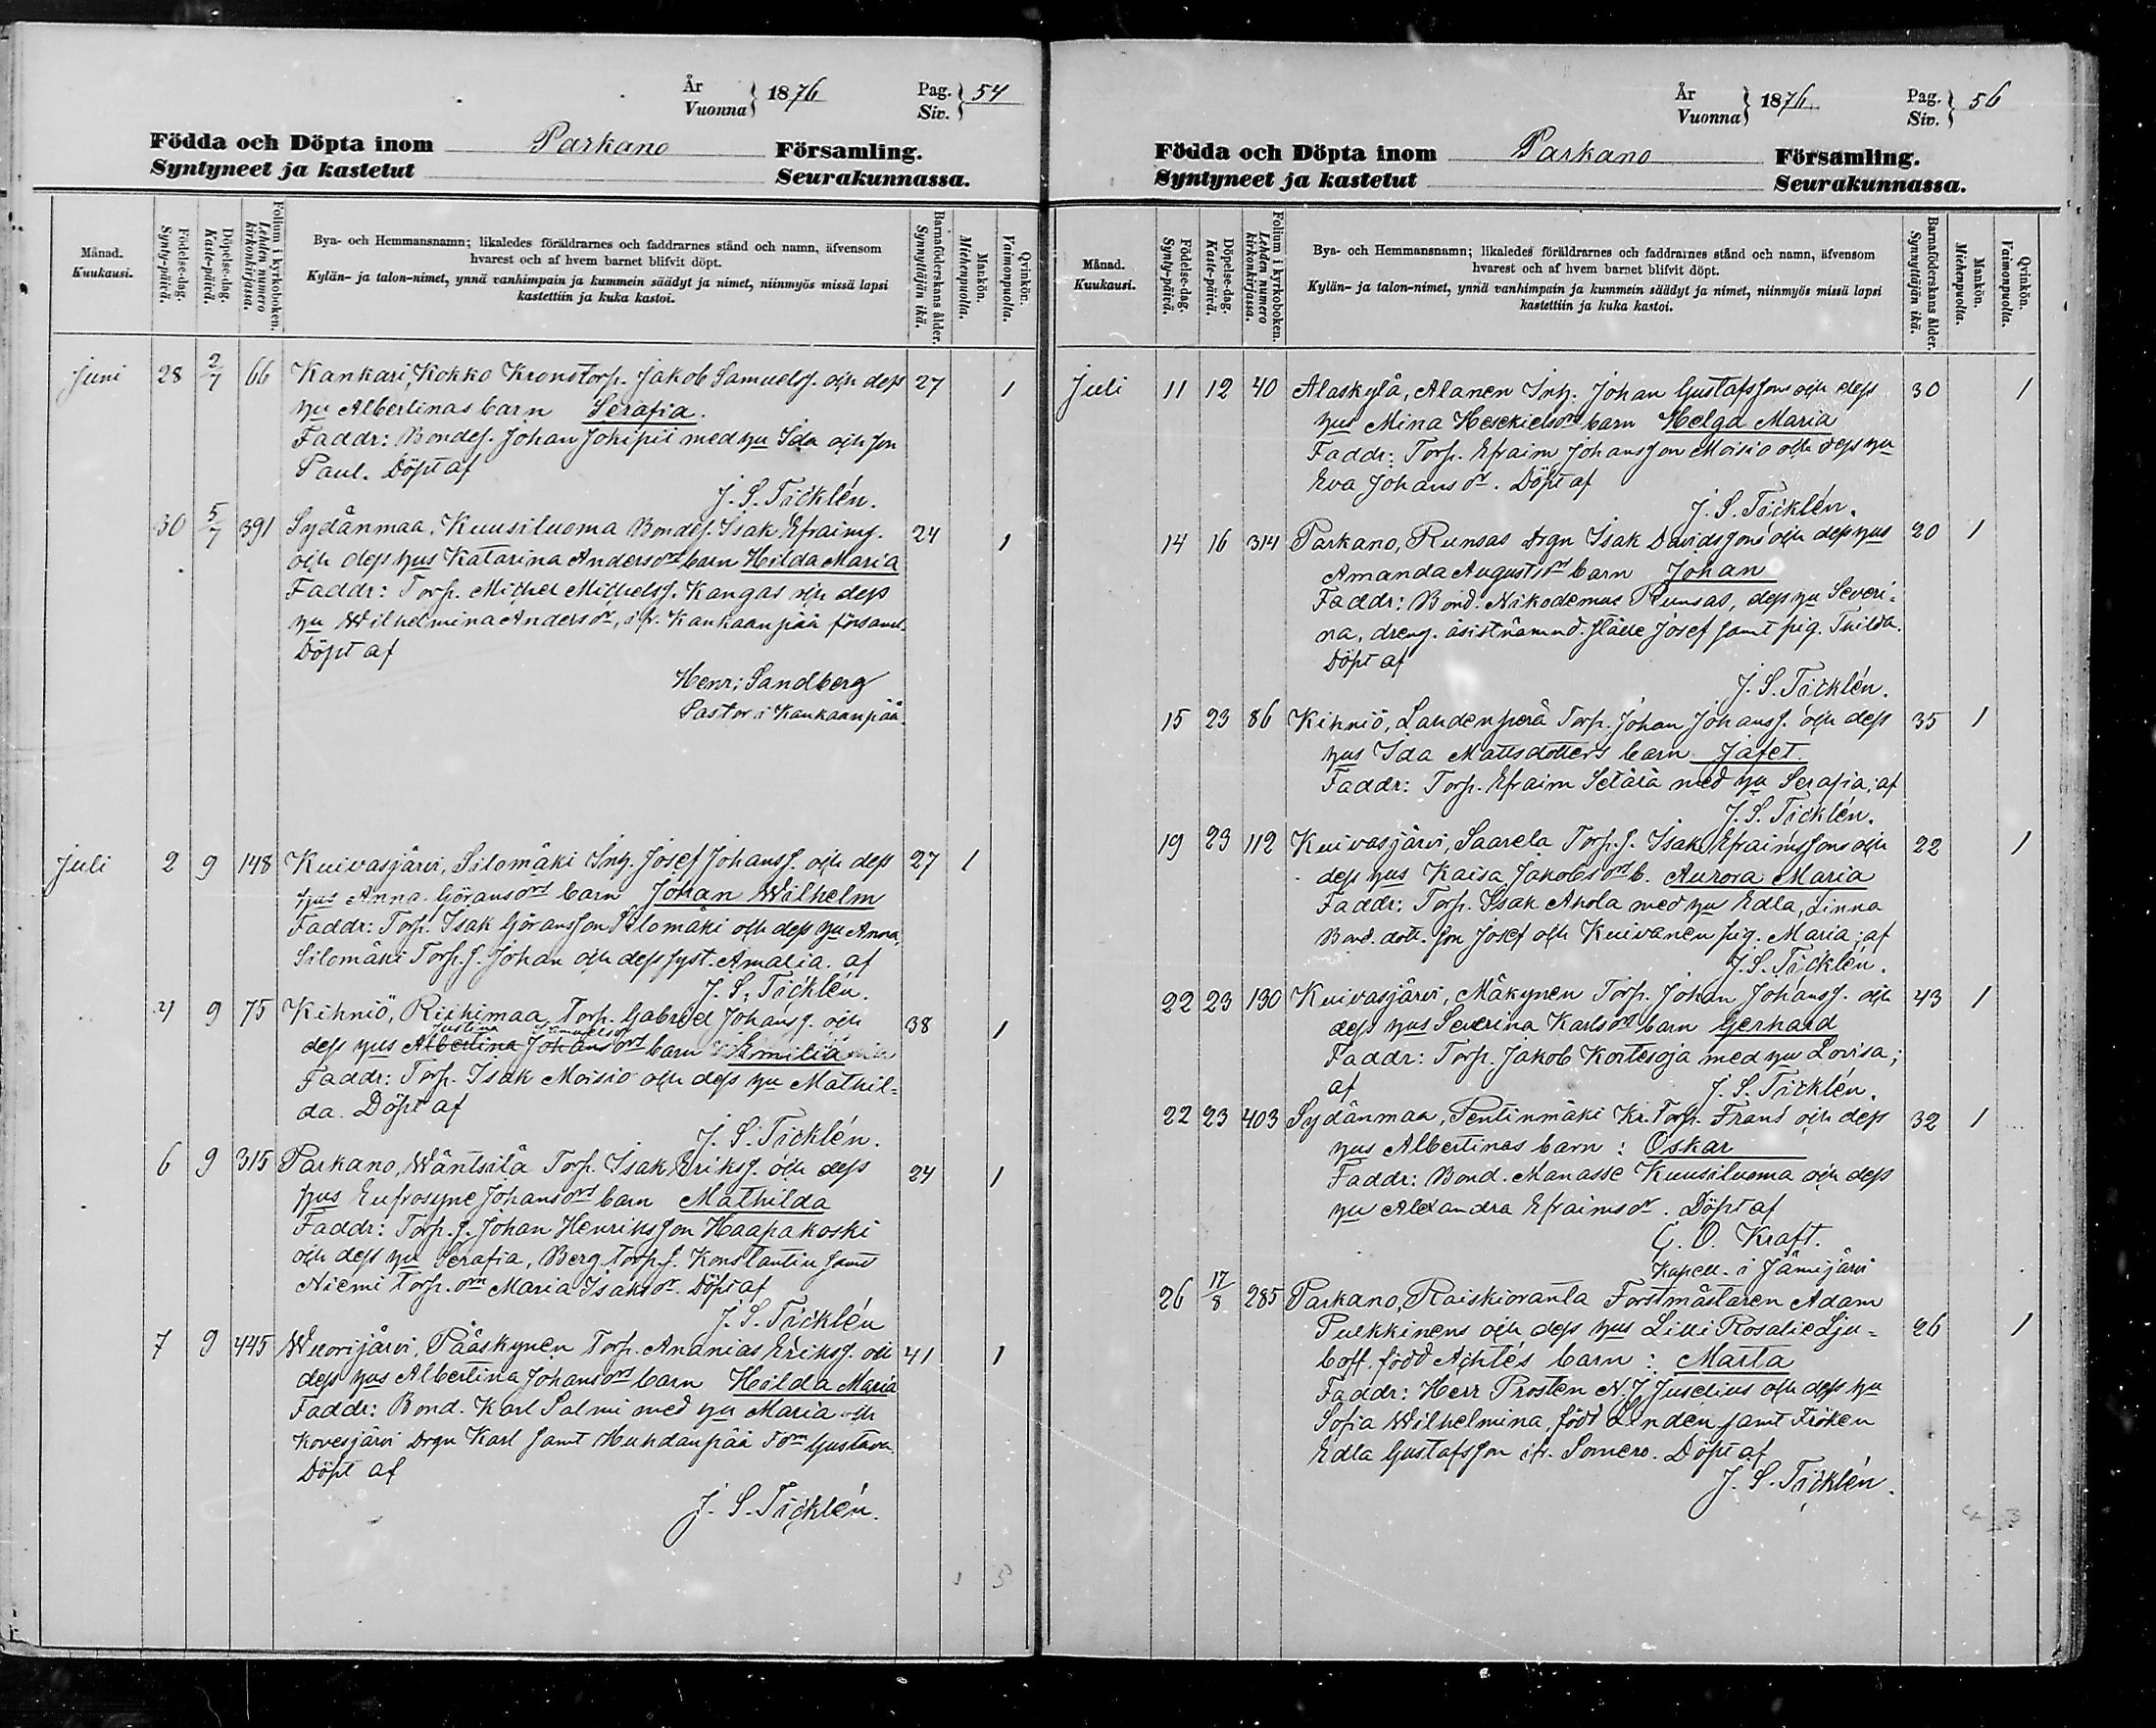 År
Vuonna } 1876 Pag.
Siv. } 54
Födda och Döpta inom Parkano Församling.
Syntyneet ja kastetut Seurakunnassa.
Månad.
Kuukausi.
Födelse-dag.
Synty-päivä.
Döpelse-dag.
Kaste-päivä.
Folium i kyrkoboken.
Lehden numero
kirkonkirjassa.
Bya- och Hemmansnamn; likaledes föräldrarnes och faddrarnes stånd och namn, äfvensom
hvarest och af hvem barnet blifvit döpt.
Kylän- ja talon-nimet, ynnä vanhimpain ja kummein säädyt ja nimet, niinmyös missä lapsi
kastettiin ja kuka kastoi.
Barnaföderskans ålder.
Synnyttäjän ikä.
Mankön.
Miehenpuolta.
Qvinkön.
Vaimonpuolta.
Juni 28 2/7 66 Kankari, Kokko Kronotorp. Jakob Samuelss. och dess 27 1
hu Albertinas barn Serafia.
Faddr: Bondes. Johan Johipii med hu Ida och son
Paul. Döpt af
J. S. Ticklén.
30 5/7 391 Sydänmaa, Kuusiluoma Bondes. Isak Efraims. 24 1
och dess hus Katarina Andersdrs barn Hilda Maria
Faddr: Torp. Michel Michelss. Kangas och dess
hu Wilhelmina Andersdr, ifr. Kankaanpää församl.
Döpt af
Henr: Sandberg
Pastor i Kankaanpää.
Juli 2 9 148 Kuivasjärvi, Silomäki Inh. Josef Johanss. och dess 27 1
hus Anna Göransdrs barn Johan Wilhelm
Faddr: Torp. Isak Göransson Silomäki och dess hu Anna,
Silomäki Torp.s. Johan och dess syst. Amalia. af
J. S. Ticklén.
4 9 75 Kihniö, Riihimaa Torp. Gabriel Johanss. och 38 1
Justina Samuelsdr
dess hus Albertina Johansdrs barn Emilia
Faddr: Torp. Isak Moisio och dess hu Mathil-
da. Döpt af
J. S. Ticklén.
6 9 315 Parkano, Wäntsilä Torp. Isak Erikss. och dess 24 1
hus Eufrosyne Johansdrs barn Mathilda
Faddr: Torp.s. Johan Henriksson Haapakoski
och dess hu Serafia, Berg Torp.s. Konstantin samt
Niemi Torp. dm Maria Isaksdr. Döpt af
J. S. Ticklén
7 9 445 Wuorijärvi, Pääskynen Torp. Ananias Erikss. och 41 1
dess hus Albertina Johansdrs barn Hilda Maria
Faddr: Bond. Karl Salmi med hu Maria och
Kovesjärvi Drgn Karl samt Huhdanpää Tdm Gustava.
Döpt af
J. S. Ticklén.
1 5
År
Vuonna } 1876 Pag.
Siv. } 56
Födda och Döpta inom Parkano Församling.
Syntyneet ja kastetut Seurakunnassa.
Månad.
Kuukausi.
Födelse-dag.
Synty-päivä.
Döpelse-dag.
Kaste-päivä.
Folium i kyrkoboken.
Lehden numero
kirkonkirjassa.
Bya- och Hemmansnamn; likaledes föräldrarnes och faddrarnes stånd och namn, äfvensom
hvarest och af hvem barnet blifvit döpt.
Kylän- ja talon-nimet, ynnä vanhimpain ja kummein säädyt ja nimet, niinmyös missä lapsi
kastettiin ja kuka kastoi.
Barnaföderskans ålder.
Synnyttäjän ikä.
Mankön.
Miehenpuolta.
Qvinkön.
Vaimonpuolta.
Juli 11 12 40 Alaskylä, Alanen Inh. Johan Gustafssons och dess 30 1
hus Mina Hesekielsdrs barn Helga Maria
Faddr: Torp. Efraim Johansson Moisio och dess hu
Eva Johansdr. Döpt af
J. S. Ticklén.
14 16 314 Parkano, Runsas Drgn Isak Davidssons och dess hus 20 1
Amanda Augustsdrs barn Johan
Faddr: Bond. Nikodemus Runsas, dess hu Severi-
na, dreng. å sistnämnd. ställe Josef samt pig. Tuilda.
Döpt af
J. S. Ticklén.
15 23 86 Kihniö, Lahdenperä Torp. Johan Johanss. och dess 35 1
hus Ida Mattsdotters barn Jafet.
Faddr: Torp. Efraim Setälä med hu Serafia; af
J. S. Ticklén.
19 23 112 Kuivasjärvi, Saarela Torp.s. Isak Efraimssons och 22 1
dess hus Kaisa Jakobsdrs b. Aurora Maria
Faddr: Torp. Isak Ahola med hu Edla, Linna
Bond. dott. son Josef och Kuivanen pig. Maria; af
J. S. Ticklén.
22 23 130 Kuivasjärvi, Mäkynen Torp. Johan Johanss. och 43 1
dess hus Severina Karlsdrs barn Gerhard
Faddr: Torp. Jakob Kortesoja med hu Lovisa;
af J. S. Ticklén.
22 23 403 Sydänmaa, Pentinmäki Kr. Torp. Frans och dess 32 1
hus Albertinas barn: Oskar
Faddr: Bond. Manasse Kuusiluoma och dess
hu Alexandra Efraimsdr. Döpt af
G. O. Kraft.
Kapell. i Jämijärvi
26 17/8 285 Parkano, Raiskioranta Forstmästaren Adam
Pulkkinens och dess hus Lilli Rosalie Lju- 26 1
boff, född Achtés barn: Marta
Faddr: Herr Prosten N. J. Juselius och dess hu
Sofia Wilhelmina, född Lindén samt Fröken
Edla Gustafsson ifr. Somero. Döpt af
J. S. Ticklén.
4 3